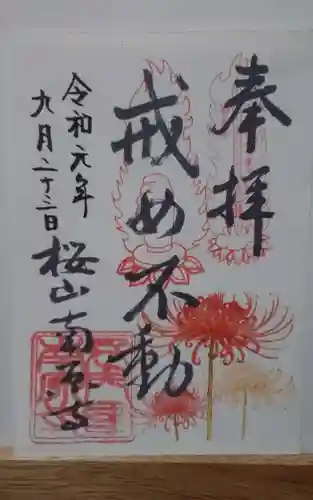 奉拝
戒め不動
令和元年
九月二十三日
桜山南原寺